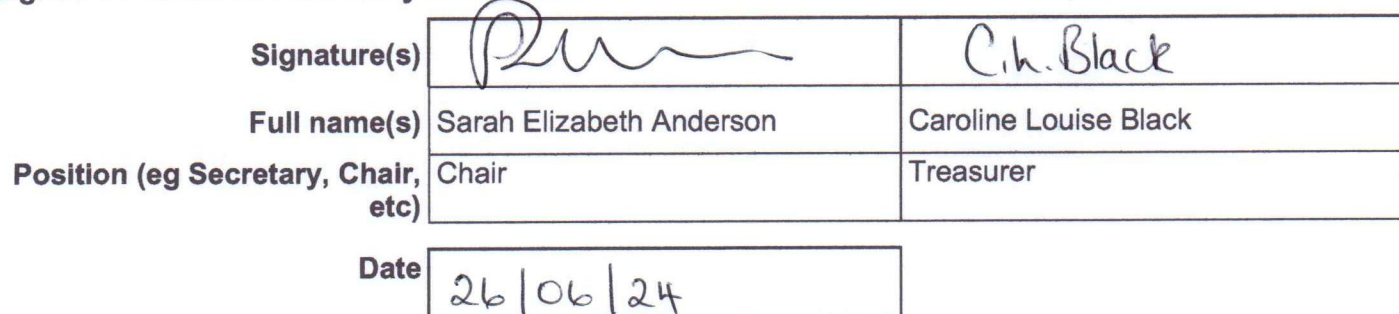 Signature(s) C.L. Black
Full name(s) Sarah Elizabeth Anderson Caroline Louise Black
Position (eg Secretary, Chair, Chair Treasurer
etc)
Date 26/06/24